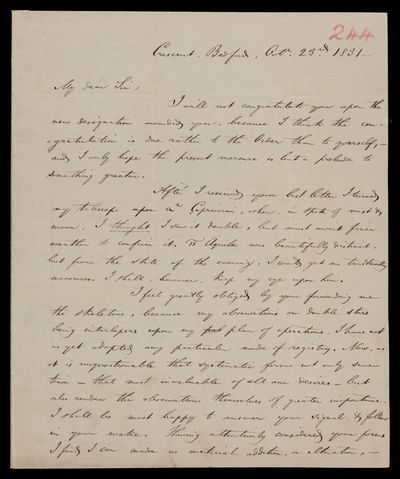 244
Crescent, Bedford, Octr. 23rd 1831
My dear Sir,
I will not congratulate you upon the
new designation awarded you, because I think the con-
gratulation is due rather to the Order than to yourself,—
and I only hope the present measure is but a prelude to
something greater.
After I received your last letter I turned
my telescope upon α2 Capricorni, when, in spite of mist &
moon, I thought I saw it double, but must await finer
weather to confirm it. π Aquilae was beautifully distinct,
but from the state of the evening, I could get no trustworthy
measures. I shall, however, keep my eye upon him.
I feel greatly obliged by your forwarding me
the skeletons, because my observations on double stars
being interlopers upon my plan of operations, I have not
as yet adopted any particular mode of registry. Now, as
it is unquestionable that systematic forms not only save
time — that most invaluable of all our desires — but
also render the observations themselves of greater importance,
I shall be most happy to answer your signal & follow
in your wake. Having attentively considered your forms
I find I can make no material addition, or alteration,—